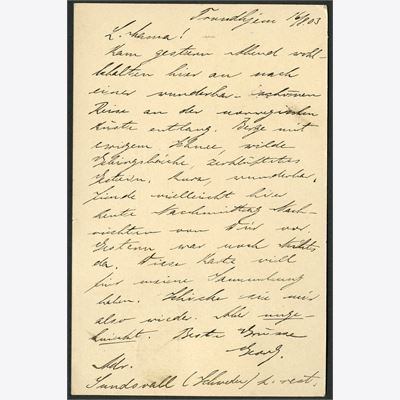 Trondhjem 16/ 03
L. Mama!
Kam gestern Abend wohl-
behalten hier an nach
einer wunderbar schönen
Reise an der norwegischen
Küste entlang. Berge mit
ewigem Schnee, wilde
Gebirgsbäche, zerklüftetes
Gestein. Kurz, wunderbar.
Finde vielleicht hier
heute Nachmittag Nach-
richten von Dir vor.
Gestern war noch Nichts
da. Diese Karte will
für meine Sammlung
haben. Schicke sie mir
also wieder. Aber unge-
knickt. Beste Grüsse
Georg.
Adr.
Sundsvall (Schweden) p. rest.